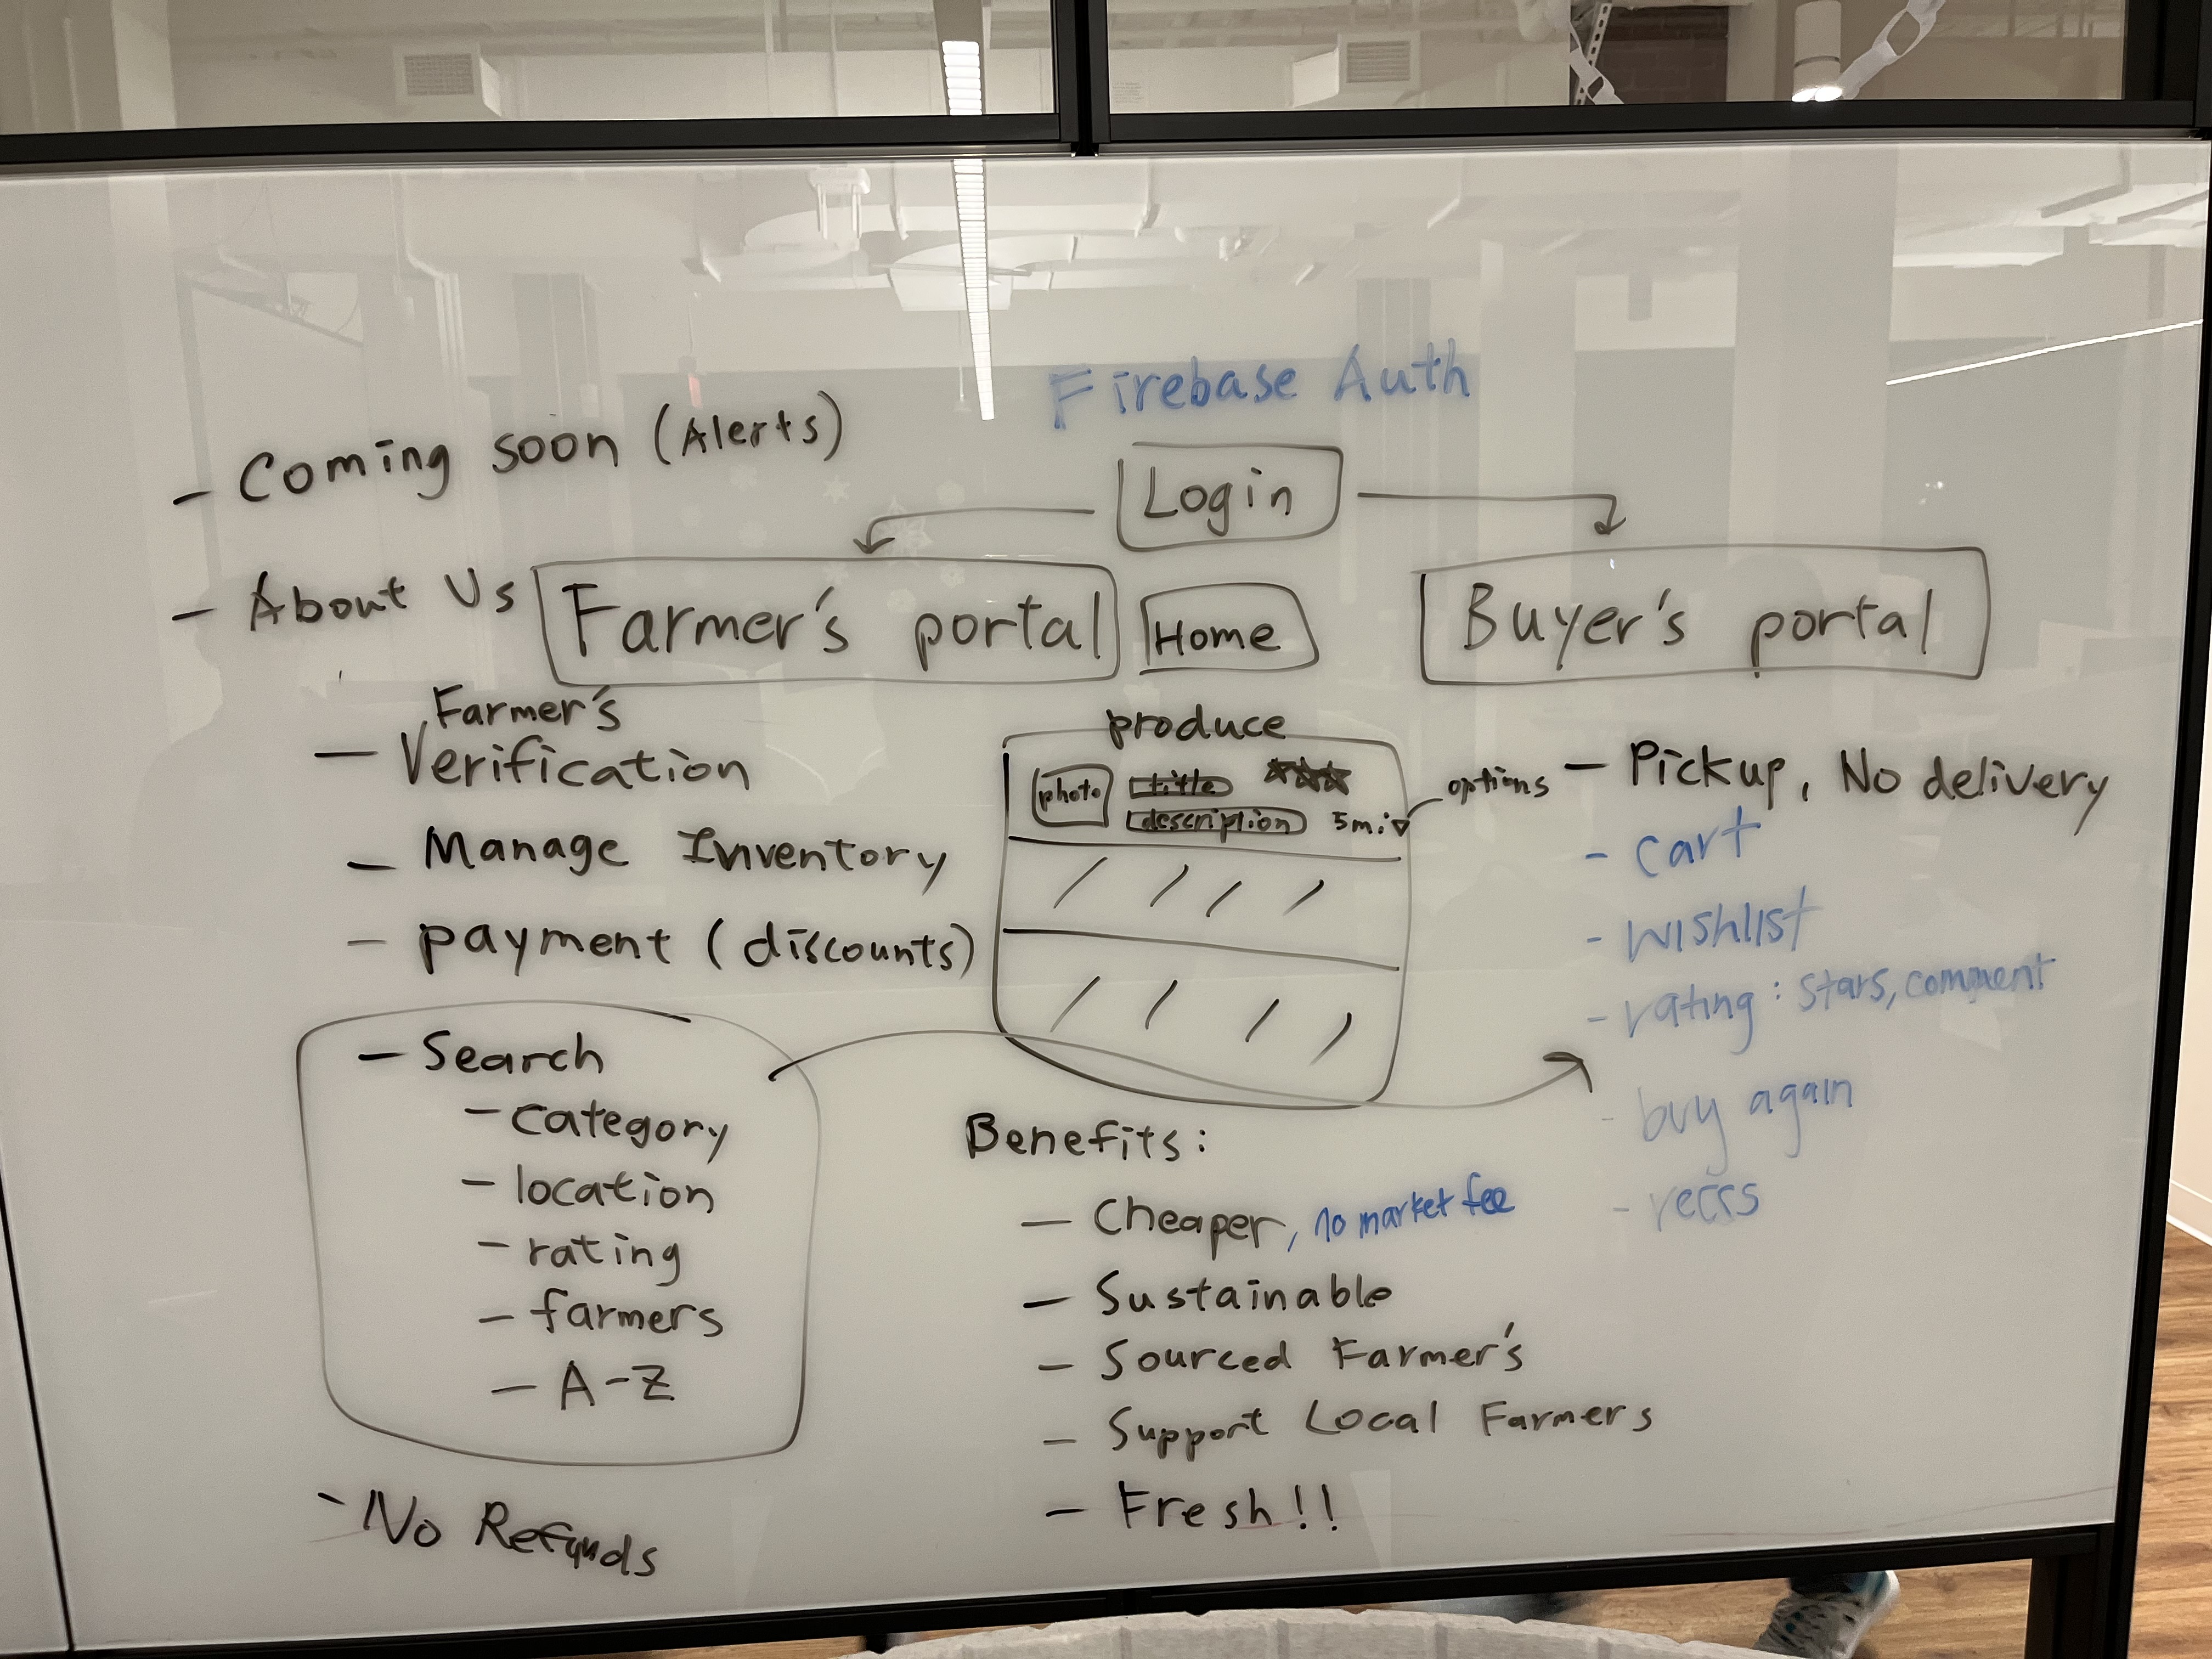 Firebase Auth
- Coming soon (Alerts)
Login
- About Us
Farmer's portal
Home
Buyer's portal
Farmer's
- Verification
- Manage Inventory
- payment (discounts)
- Search
- category
- location
- rating
- farmers
- A-Z
- No Refunds
produce
photo
title
description
5mi
options
- Pickup, No delivery
- cart
- wishlist
- rating: stars, comment
- buy again
- recs
Benefits:
- Cheaper, no market fee
- Sustainable
- Sourced Farmer's
- Support Local Farmers
- Fresh!!